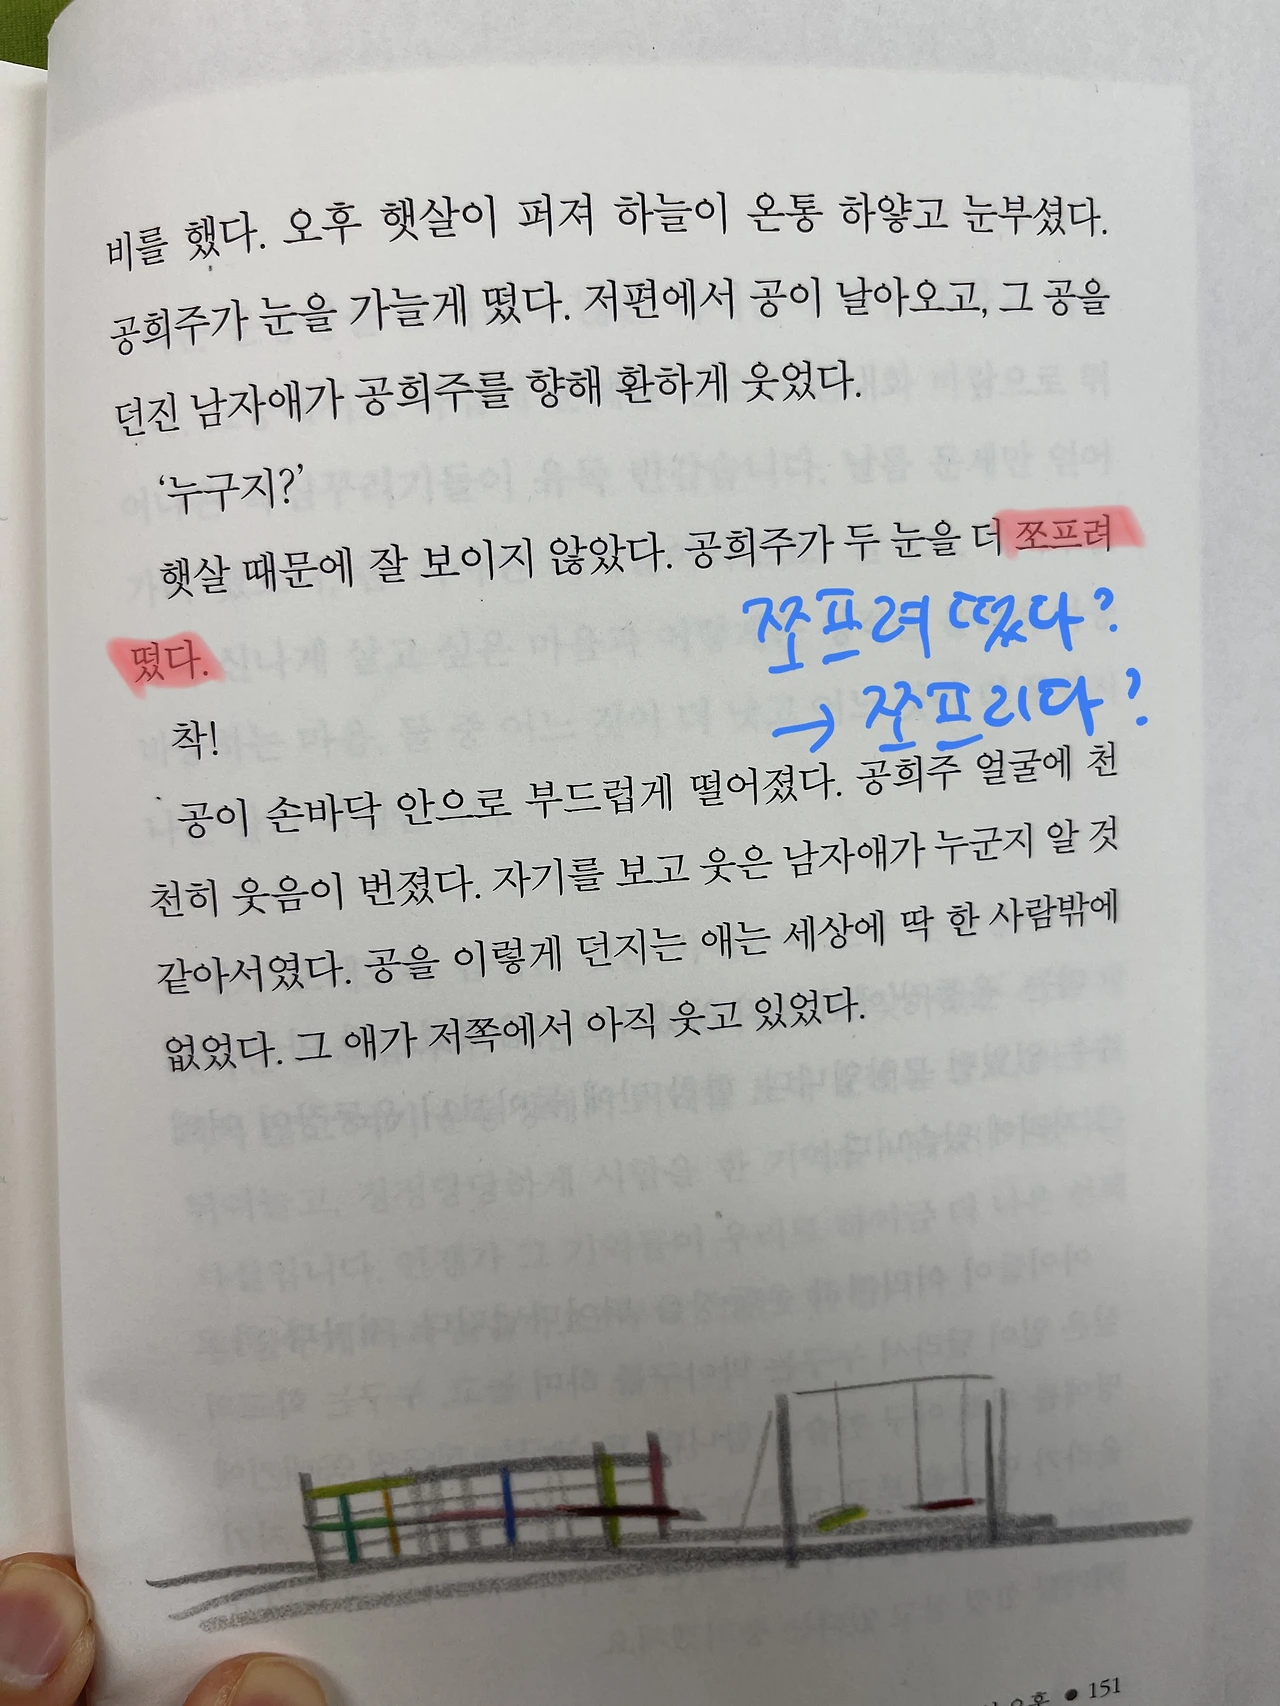 비를 했다. 오후 햇살이 퍼져 하늘이 온통 하얗고 눈부셨다.
공희주가 눈을 가늘게 떴다. 저편에서 공이 날아오고, 그 공을
던진 남자애가 공희주를 향해 환하게 웃었다.
‘누구지?’
햇살 때문에 잘 보이지 않았다. 공희주가 두 눈을 더 쪼프려
쪼프려 떴다?
떴다.
→ 쪼프리다?
착!
공이 손바닥 안으로 부드럽게 떨어졌다. 공희주 얼굴에 천
천히 웃음이 번졌다. 자기를 보고 웃은 남자애가 누군지 알 것
같아서였다. 공을 이렇게 던지는 애는 세상에 딱 한 사람밖에
없었다. 그 애가 저쪽에서 아직 웃고 있었다.
● 151